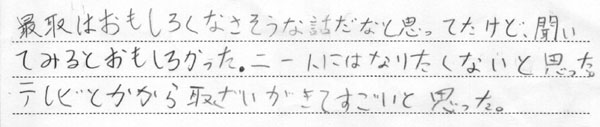 最取はおもしろくなさそうな話だなと思ってたけど、聞い
てみるとおもしろかった。ニートにはなりたくないと思った。
テレビとかから取ざいがきてすごいと思った。